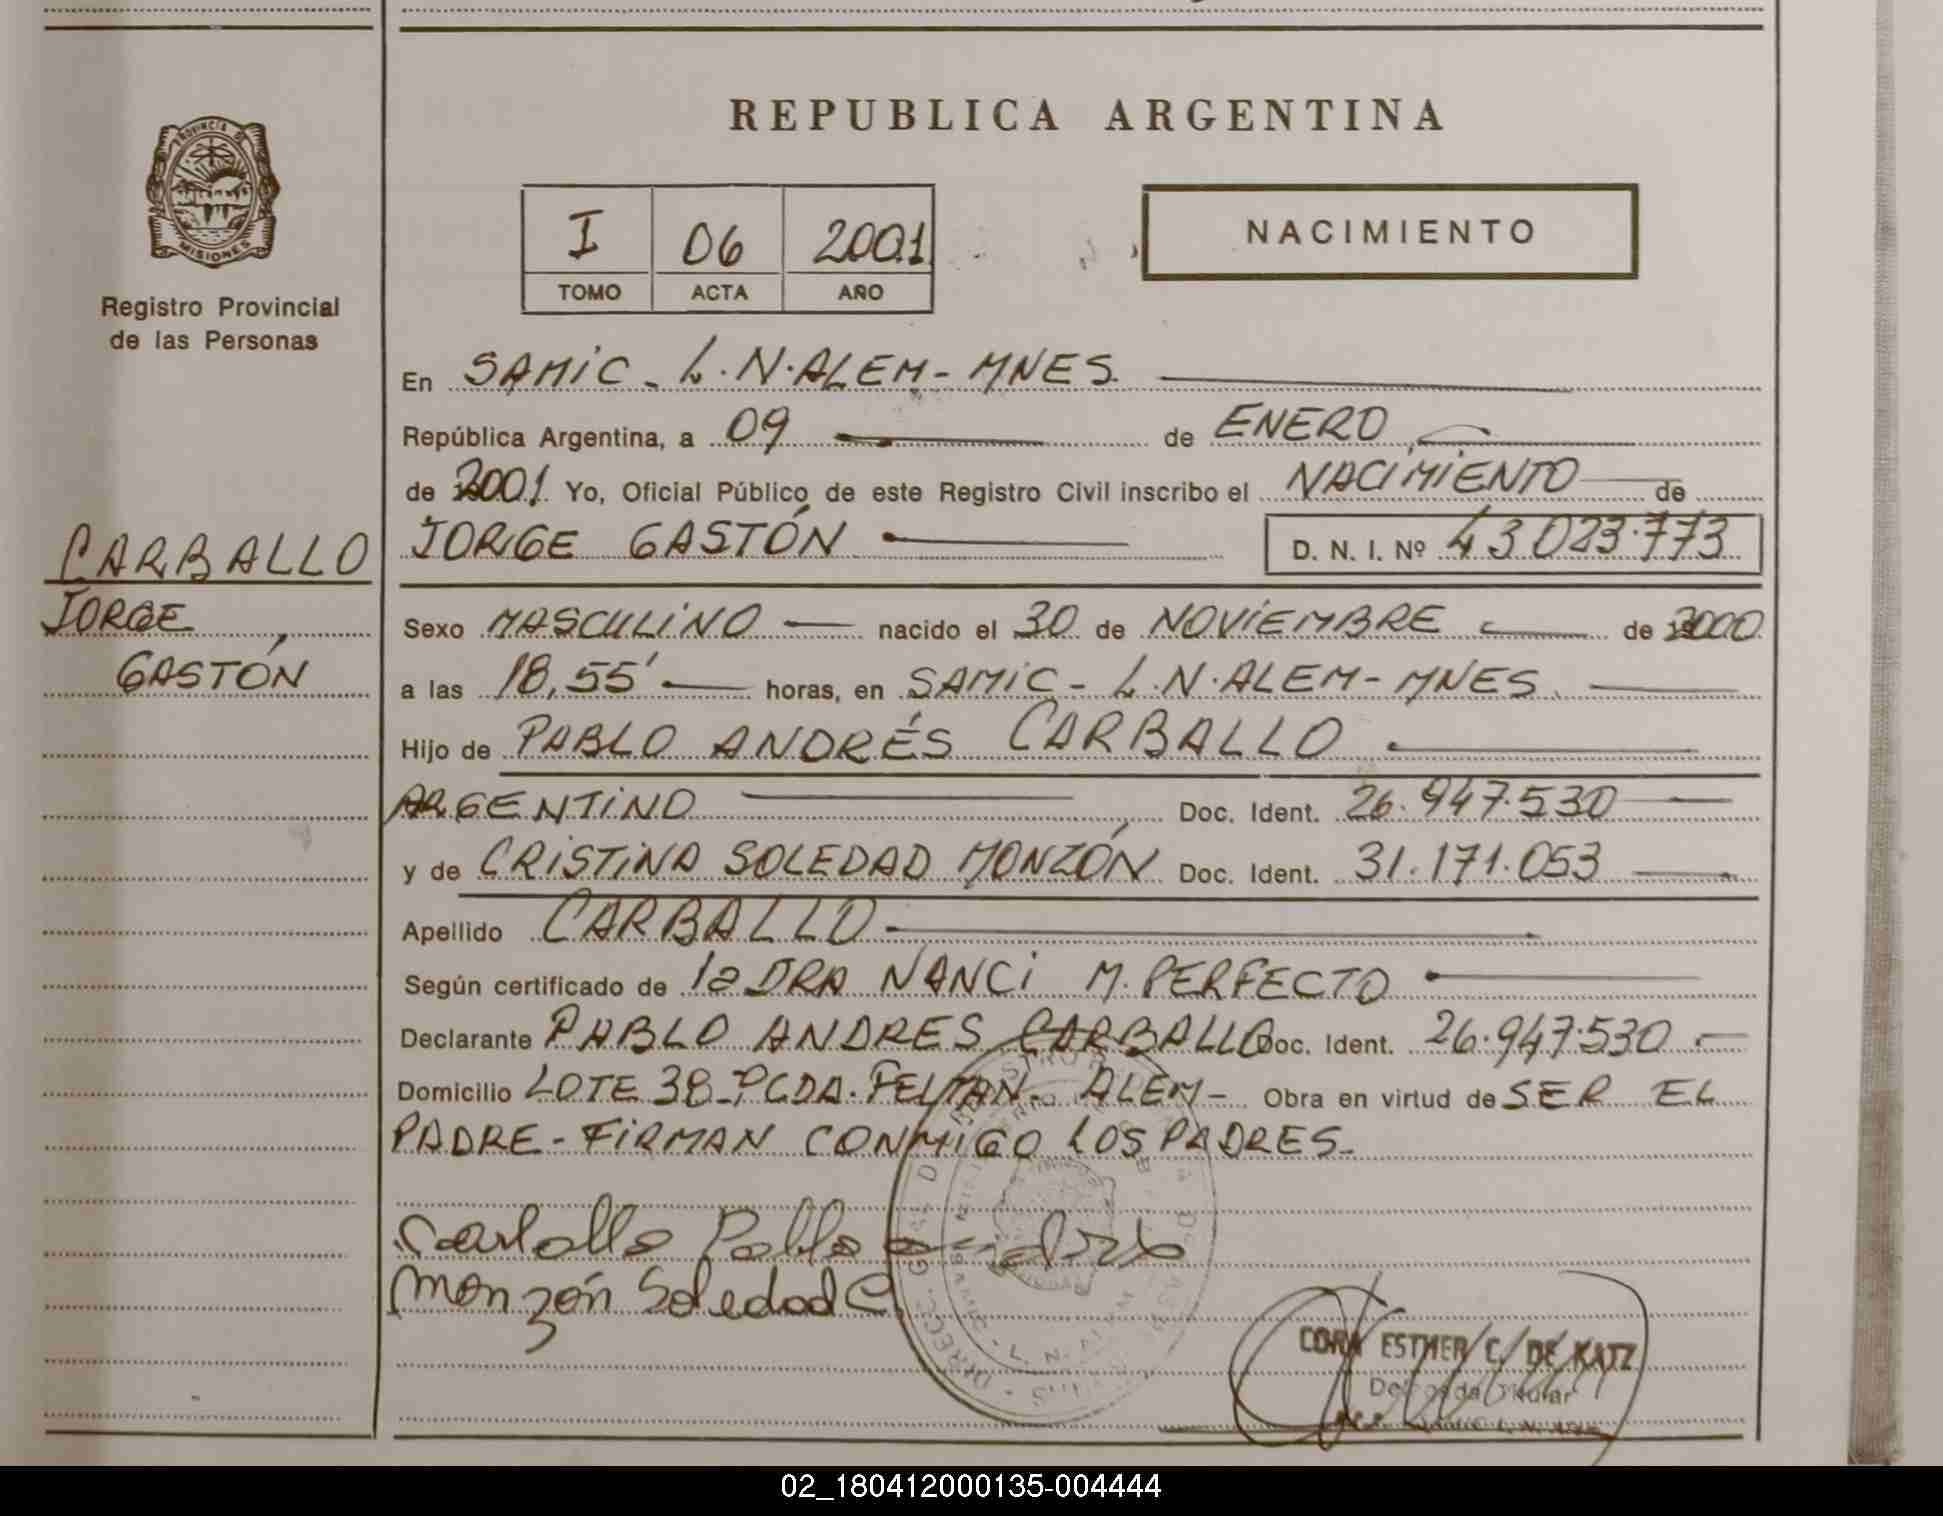 REPUBLICA ARGENTINA
PROVINCIA DE
MISIONES
Registro Provincial
de las Personas
I 06 2001
TOMO ACTA AÑO
NACIMIENTO
En SAMiC - L.N.ALEM - MNES.
República Argentina, a 09 de ENERO
de 2001. Yo, Oficial Público de este Registro Civil inscribo el NACIMIENTO de
JORGE GASTÓN D. N. I. Nº 43.023.773
CARBALLO
JORGE
GASTÓN
Sexo MASCULINO nacido el 30 de NOVIEMBRE de 2000
a las 18,55' horas, en SAMiC - L.N.ALEM - MNES.
Hijo de PABLO ANDRÉS CARBALLO
ARGENTINO Doc. Ident. 26.947.530
y de CRISTINA SOLEDAD MONZÓN Doc. Ident. 31.171.053
Apellido CARBALLO
Según certificado de la DRA NANCi M. PERFECTO
Declarante PABLO ANDRES CARBALLO Doc. Ident. 26.947.530
Domicilio LOTE 38 - PCDA. FELTAN - ALEM - Obra en virtud de SER EL
PADRE - FIRMAN CONMIGO LOS PADRES.
Carballo Pablo Andres
Monzón Soledad C.
CORA ESTHER C. DE KATZ
Delegada Titular
02_180412000135-004444